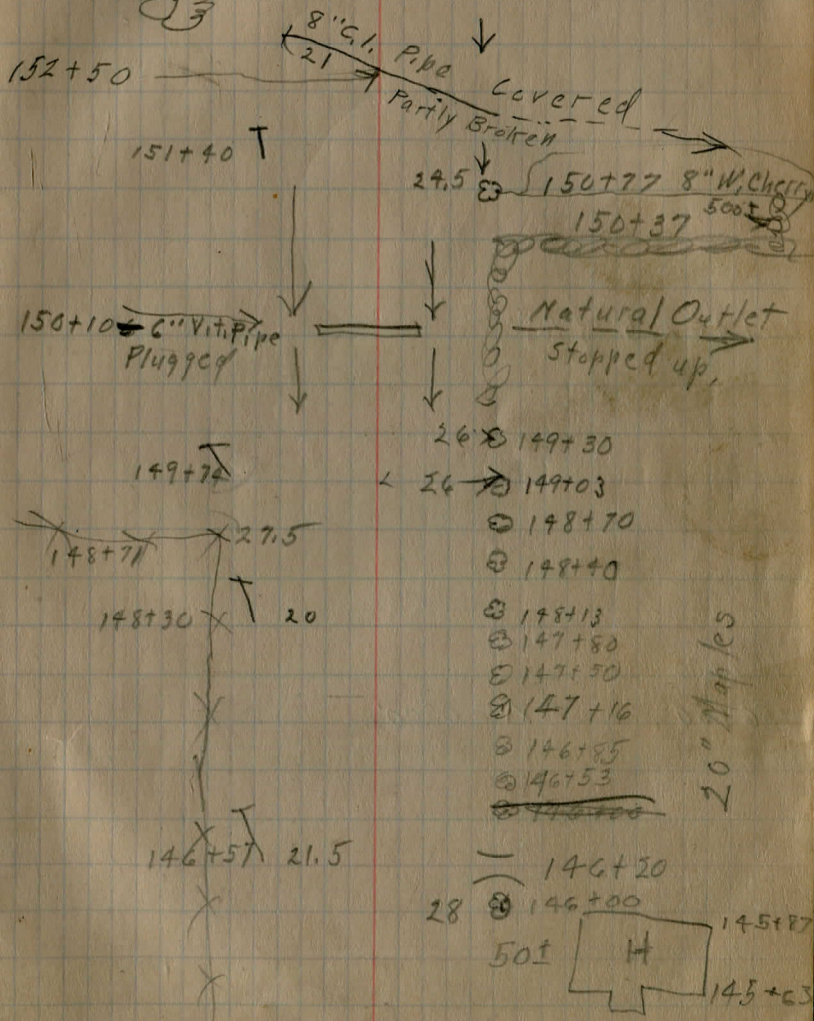 8" C.I. Pipe
21
152+50
Covered
Partly Broken
151+40 T
24.5
150+77 8" W. Cherry
500±
150+37
150+10 6" Vit. Pipe
Plugged
Natural Outlet
Stopped up,
26 149+30
149+74
26 149+03
148+70
27.5
148+71
148+40
148+30
20
148+13
147+80
147+50
147+16
146+85
146+53
20" Maples
146+57 21.5
146+20
28 146+00
145+87
50± H
145+63